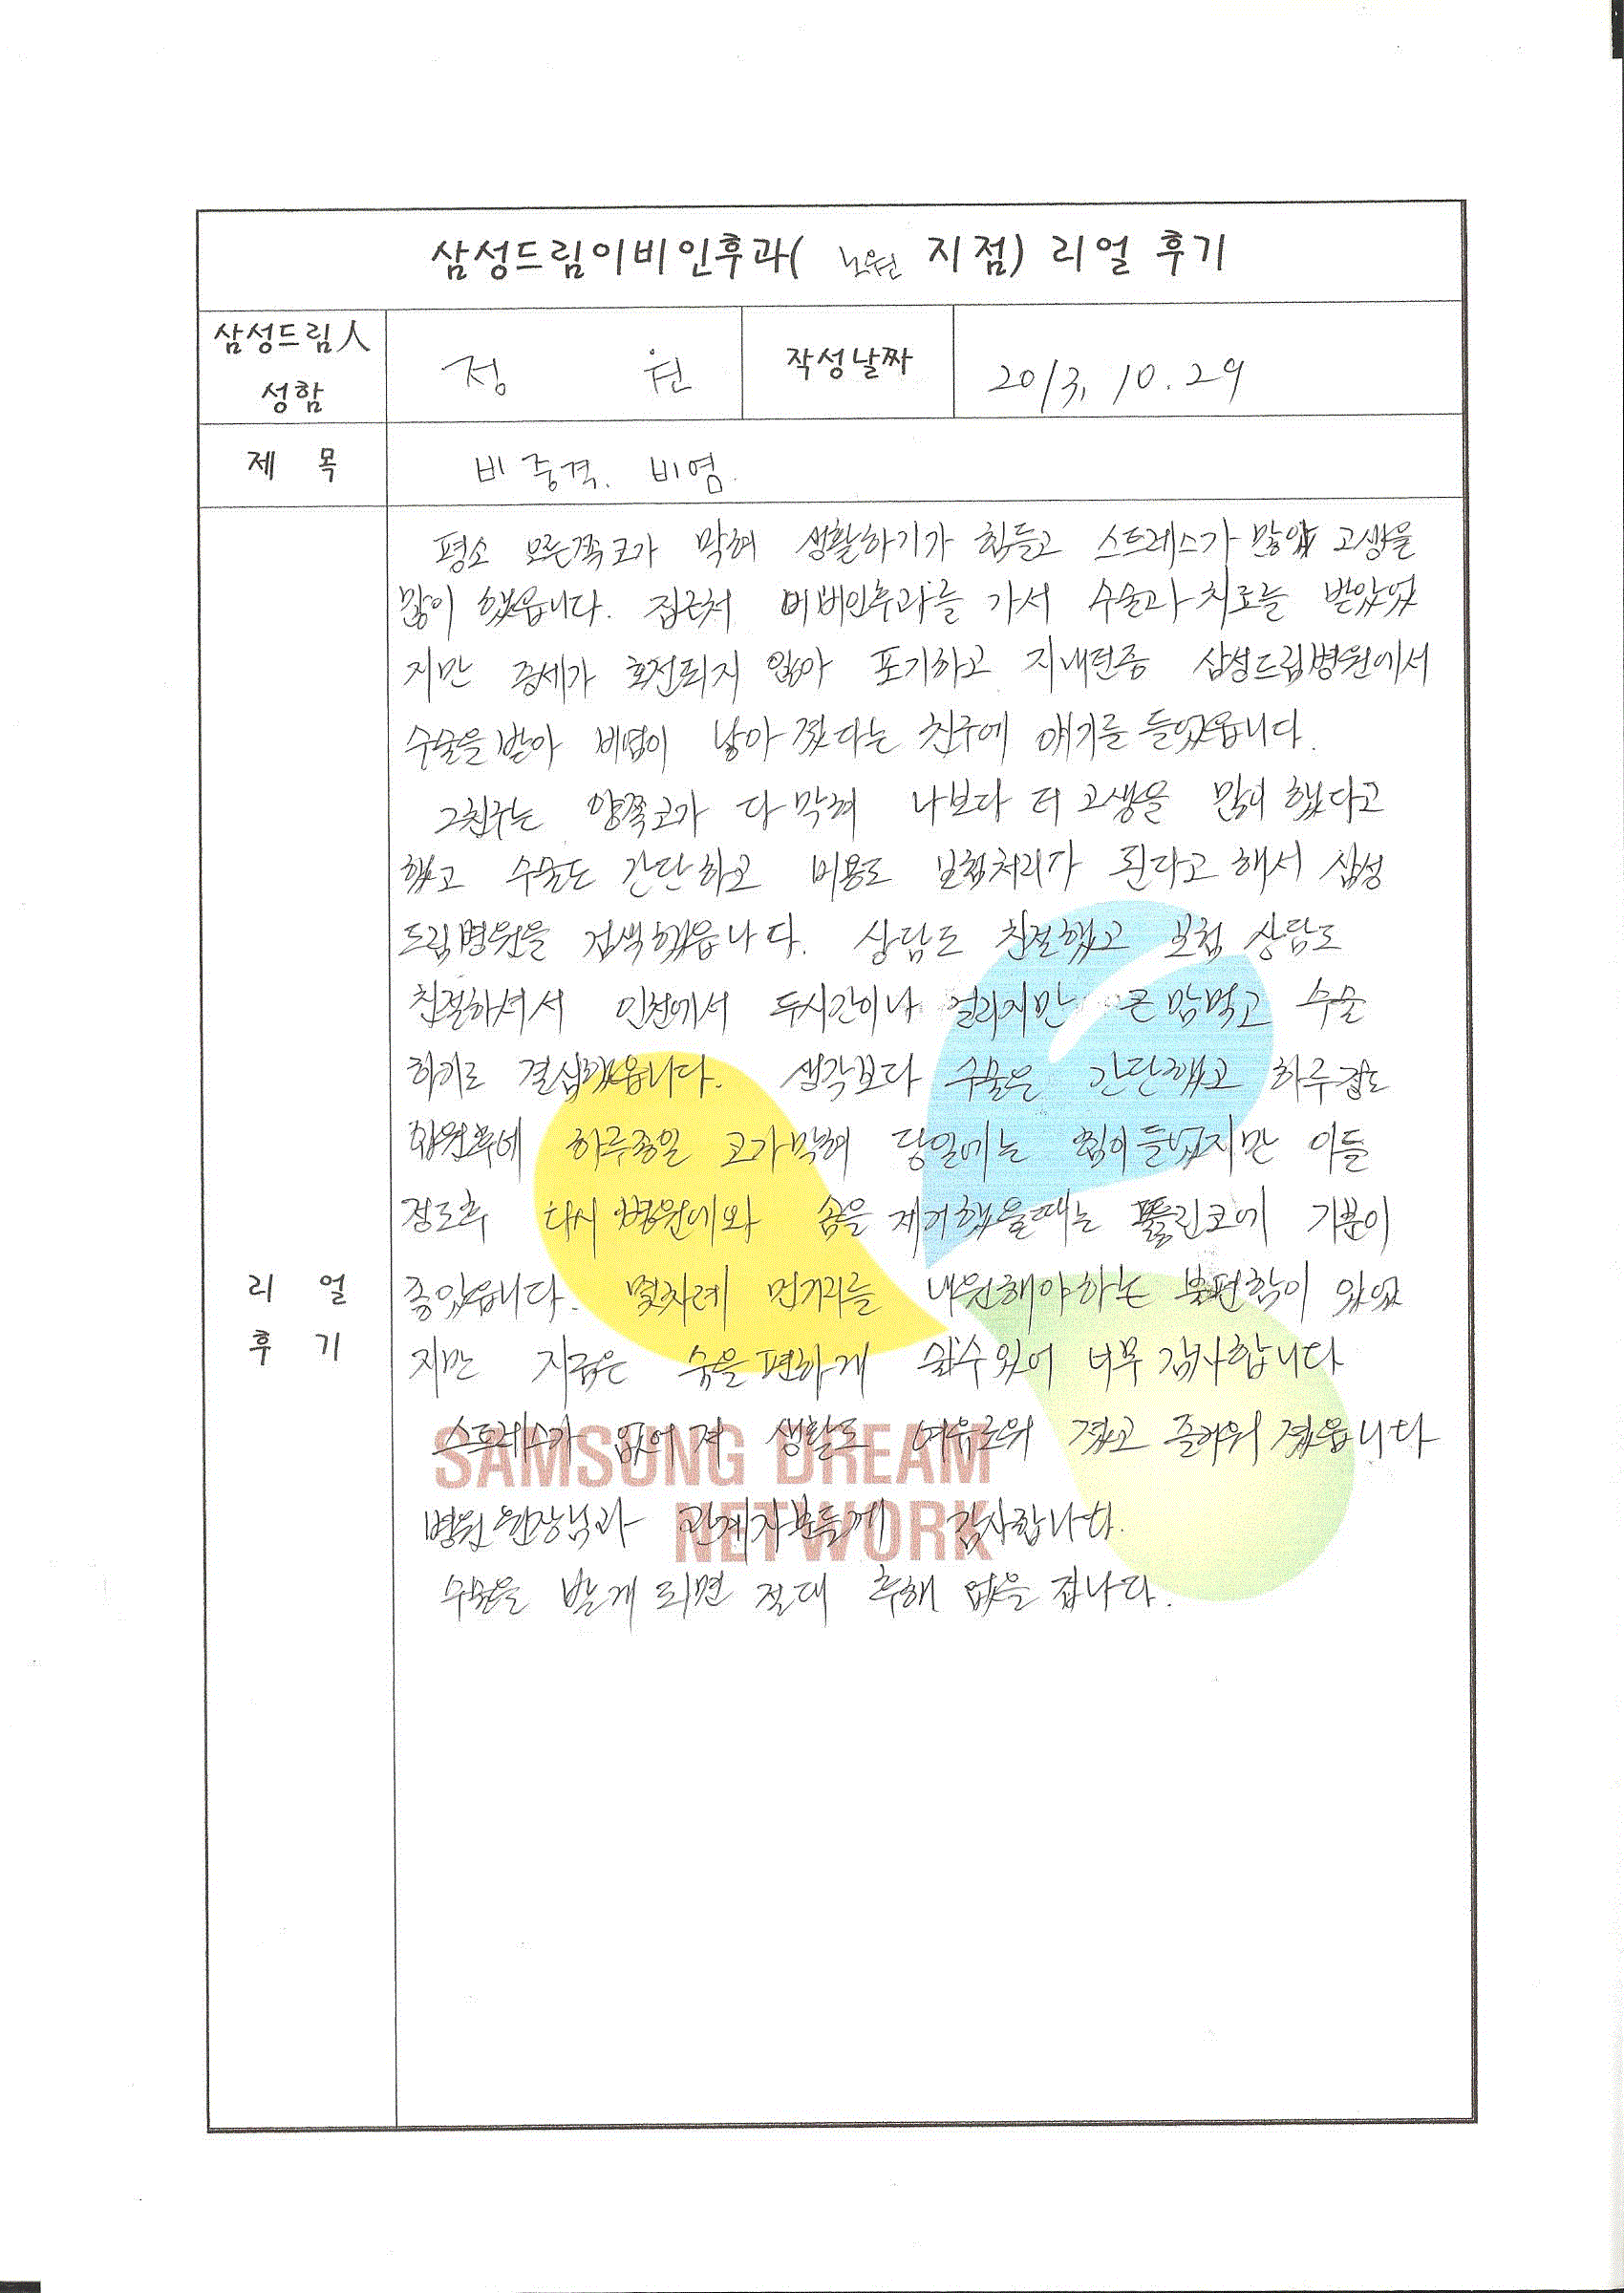 삼성드림이비인후과( 노원 지점) 리얼 후기
삼성드림人 성함
정 원
작성날짜
2013. 10. 29
제 목
비중격. 비염.
리 얼 후 기
평소 오른쪽코가 막혀 생활하기가 힘들고 스트레스가 많았 고생을
많이 했읍니다. 집근처 이비인후과를 가서 수술과 치료를 받았었
지만 증세가 호전되지 않아 포기하고 지내던중 삼성드림병원에서
수술을 받아 비염이 낳아 졌다는 친구에 얘기를 들었읍니다.
그친구는 양쪽코가 다 막혀 나보다 더 고생을 많이 했다고
했고 수술도 간단하고 비용도 보험처리가 된다고 해서 삼성
드림병원을 검색했읍니다. 상담도 친절했고 보험 상담도
친절하셔서 인천에서 두시간이나 걸리지만 큰맘먹고 수술
하기로 결심했읍니다. 생각보다 수술은 간단했고 하루정도
입원후에 하루종일 코가막혀 당일에는 힘이들었지만 이틀
정도후 다시 병원에와 솜을 제거했을때는 뚫린코에 기분이
좋았읍니다. 몇차례 먼거리를 내원해야하는 불편함이 있었
지만 지금은 숨을편하게 쉴수있어 너무 감사합니다
스트레스가 없어져 생활도 여유로워 졌고 즐거워 졌읍니다
병원 원장님과 관계자분들께 감사합니다.
수술을 받게 되면 절대 후회 없을 겁니다.
SAMSUNG DREAM
NETWORK